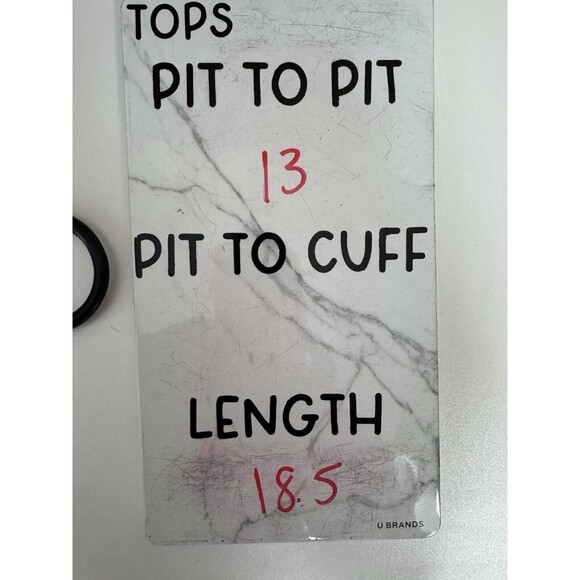 TOPS
PIT TO PIT
13
PIT TO CUFF
LENGTH
18.5
U BRANDS